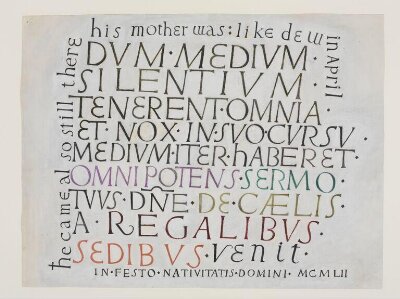 he came al so still there
his mother was: like dew
in April
DVM · MEDIVM ·
SILENTIVM ·
TENERENT · OMNIA ·
ET · NOX · IN · SVO · CVRSV ·
MEDIVM · ITER · hABERET ·
OMNIPOTENS · SERMO ·
TVVS · DÑE · DE · CÆLIS ·
A · REGALIBVS ·
SEDIBVS · venit ·
IN · FESTO · NATIVITATIS · DOMINI · MCMLII